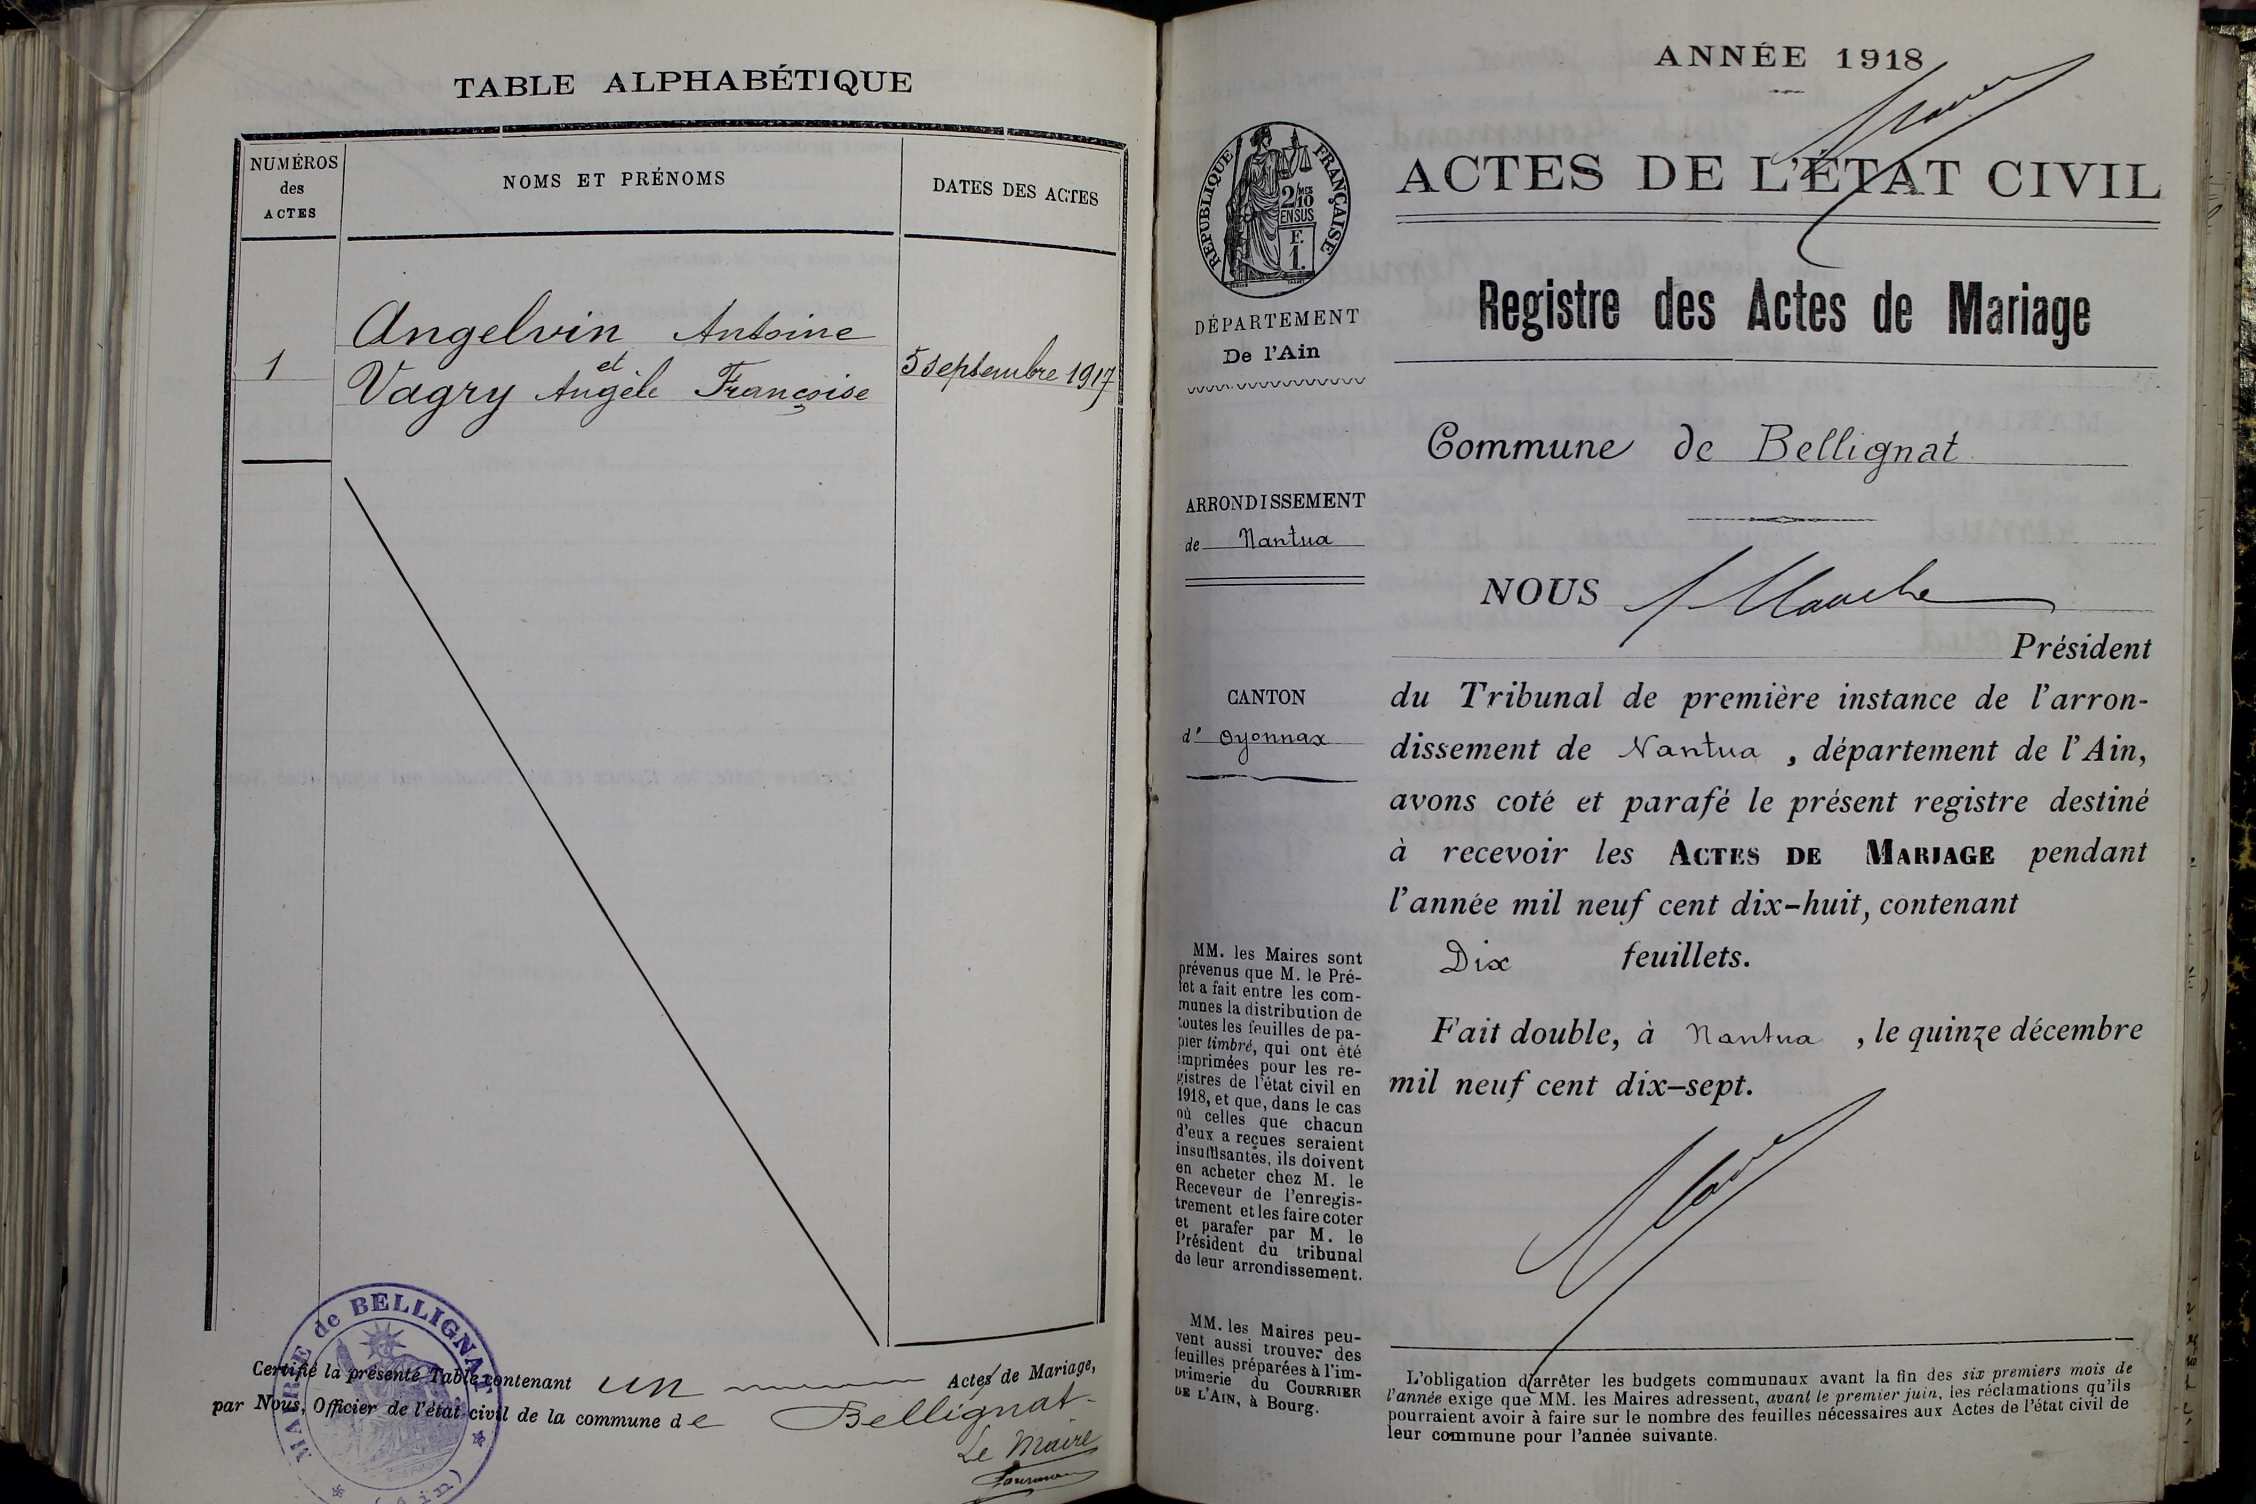 TABLE ALPHABÉTIQUE
NUMÉROS
des
ACTES
NOMS ET PRÉNOMS
DATES DES ACTES
1
Angelvin Antoine
et
Vagry Angèle Françoise
5 septembre 1917
MAIRIE de BELLIGNAT
(Ain)
Certifié la présente Table contenant un Actes de Mariage,
par Nous, Officier de l'état civil de la commune de Bellignat
Le Maire
ANNÉE 1918
ACTES DE L'ÉTAT CIVIL
RÉPUBLIQUE FRANÇAISE
2 MES
10
EN SUS
F.
1.
DÉPARTEMENT
De l'Ain
Registre des Actes de Mariage
Commune de Bellignat
ARRONDISSEMENT
de Nantua
CANTON
d' Oyonnax
NOUS
Président
du Tribunal de première instance de l'arron-
dissement de Nantua, département de l'Ain,
avons coté et parafé le présent registre destiné
à recevoir les ACTES DE MARIAGE pendant
l'année mil neuf cent dix-huit, contenant
Dix feuillets.
Fait double, à Nantua, le quinze décembre
mil neuf cent dix-sept.
MM. les Maires sont
prévenus que M. le Pré-
fet a fait entre les com-
munes la distribution de
toutes les feuilles de pa-
pier timbré, qui ont été
imprimées pour les re-
gistres de l'état civil en
1918, et que, dans le cas
où celles que chacun
d'eux a reçues seraient
insuffisantes, ils doivent
en acheter chez M. le
Receveur de l'enregis-
trement et les faire coter
et parafer par M. le
Président du tribunal
de leur arrondissement.
MM. les Maires peu-
vent aussi trouver des
feuilles préparées à l'im-
primerie du COURRIER
DE L'AIN, à Bourg.
L'obligation d'arrêter les budgets communaux avant la fin des six premiers mois de
l'année exige que MM. les Maires adressent, avant le premier juin, les réclamations qu'ils
pourraient avoir à faire sur le nombre des feuilles nécessaires aux Actes de l'état civil de
leur commune pour l'année suivante.